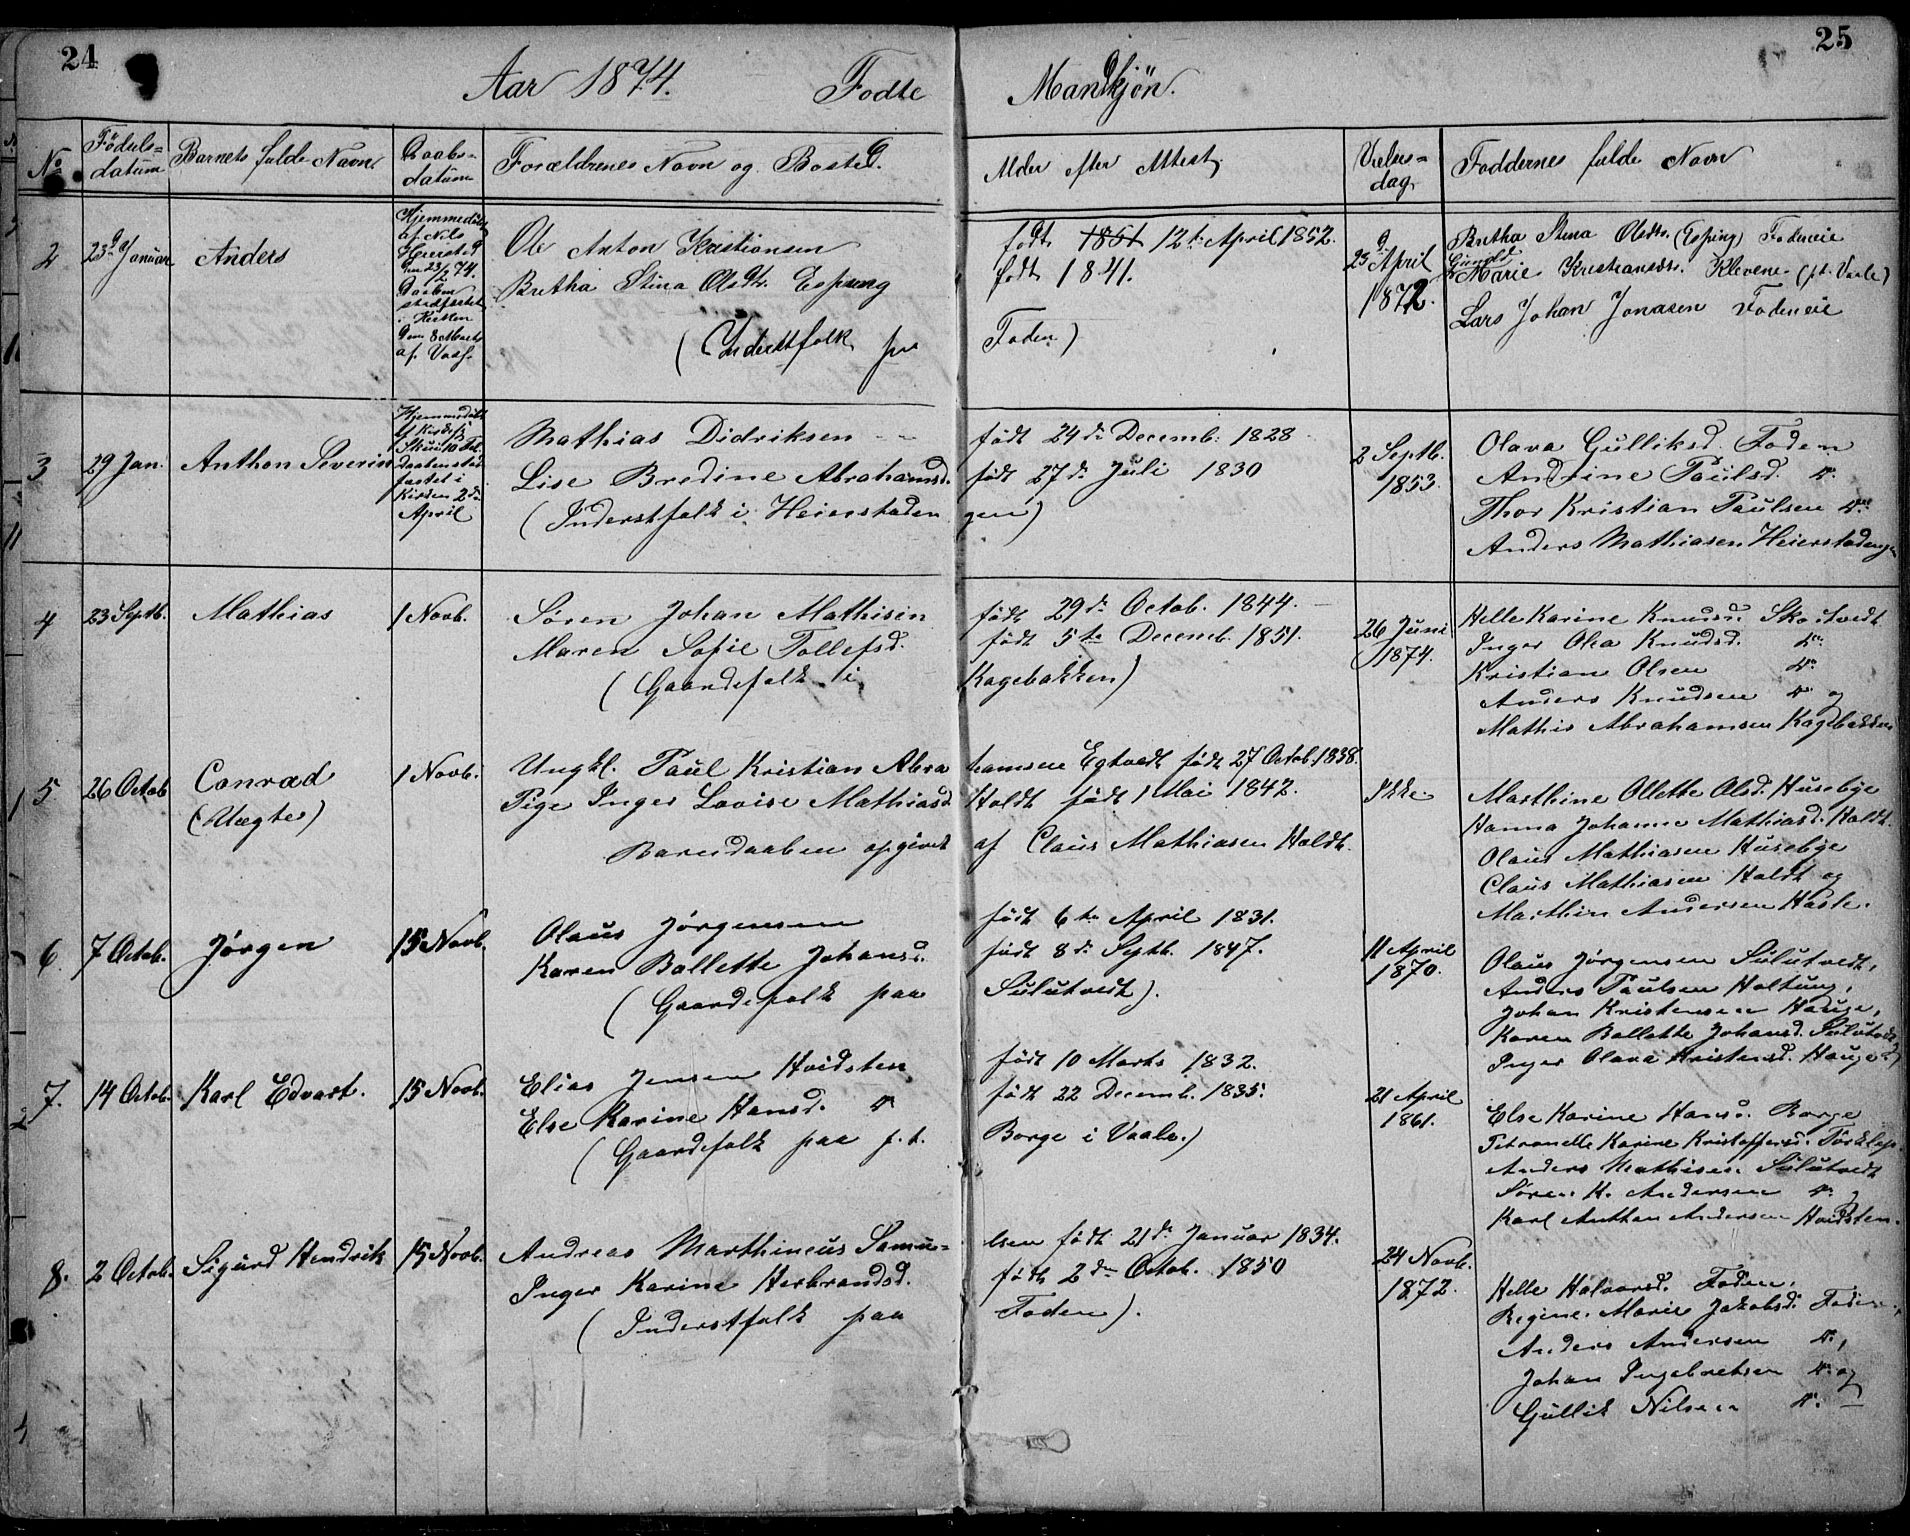 24
25
Aar 1874. Fødte Mandkjøn.
No
Fødsels=
datum
Barnets fulde Navn
Daabs=
datum
Forældrenes Navn og Bosted.
Alder efter Attest
Vielses=
dag
Faddernes fulde Navn
2
23de Januar
Anders
Hjemmedöbt
af Nils
Heiersted
den 23/2 74.
Daaben
stadfæstet
i Kirken
den 8 Marts
af
Ole Anton Kristiansen
Bretha Stina Olsdtr. Esping
(Inderstfolk paa
født 1851 12te April 1852.
født 1841.
Foden)
23d April
1872.
Bretha Stina Olsdtr. (Esping) Fodeneie
Gunild
Marie Kristiansdtr. Klevene (pt. Vaale)
Lars Johan Jonasen Fodeneie
3
29 Jan.
Anthon Severin
Hjemmedöbt
af Kirkesj.
Skui 10 Feb.
Daaben stad
fæstet i
Kirken 2den
April
Mathias Didriksen
Lise Bredine Abrahamsd.
(Inderstfolk i Heierstaden
født 24de Decemb. 1828
født 27de Juli 1830
gen)
2 Septb.
1853.
Olava Gulliksd. Foden
Andrine Paulsd. do.
Thor Kristian Paulsen do.
Anders Mathiasen Heierstadengen
4
23 Septb.
Mathias
1 Novb.
Søren Johan Mathisen
Maren Sofie Tollefsd.
(Gaardefolk i
født 29de Octob. 1844.
født 5te Decemb. 1851.
Kagebakken)
26 Juni
1874.
Helle Karine Knudsd. Skotvedt
Inger Olea Knudsd. do.
Kristian Olsen do.
Anders Knudsen do. og
Mathis Abrahamsen Kagebakken
5
26 Octob.
Conrad
(Uægte)
1 Novb.
Ungkl. Paul Kristian Abra
Pige Inger Lovise Mathiasd.
Barnedaaben opgivet
hamsen Egtvedt født 27 Octob. 1838.
Holdt født 1 Mai 1842.
af Claus Mathiasen Holdt.
Ikke.
Marthine Ollette Olsd. Husebye
Hanna Johanne Mathiasd. Holdt.
Olaus Mathiasen Husebye
Claus Mathiasen Holdt og
Marthin Andersen Hasle.
6.
7 Octob.
Jørgen
15 Novb.
Olaus Jørgensen
Karen Bollette Johansd.
(Gaardefolk paa
født 6te April 1831.
født 8de Septb. 1847.
Sulutvedt).
11 April
1870.
Olaus Jørgensen Sulutvedt,
Anders Paulsen Holtung,
Johan Kristensen Hauge,
Karen Bollette Johansd. Sulutvedt
Inger Olava Kristensd. Hauge
7.
14 Octob.
Karl Edvart.
15 Novb.
Elias Jensen Hvidsten
Else Karine Hansd. do.
(Gaardefolk paa p. t.
født 10 Marts 1832.
født 22 Decemb. 1835.
Borge i Vaale.)
21 April
1861.
Else Karine Hansd. Borge
Petronelle Karine Kristoffersd. Torklep.
Anders Mathisen Sulutvedt
Søren K. Andersen do. og
Karl Anthon Andersen Hvidsten.
8.
2 Octob.
Sigurd Hendrik
15 Novb.
Andreas Marthineus Samu=
Inger Karine Herbrandsd.
(Inderstfolk paa
elsen født 21de Januar 1834.
født 2den Octob. 1850
Foden).
24 Novb.
1872.
Helle Halvorsd. Foden,
Regine Marie Jakobsd. Foden,
Anders Andersen do.,
Johan Ingebretsen do. og
Gullik Nilsen do.